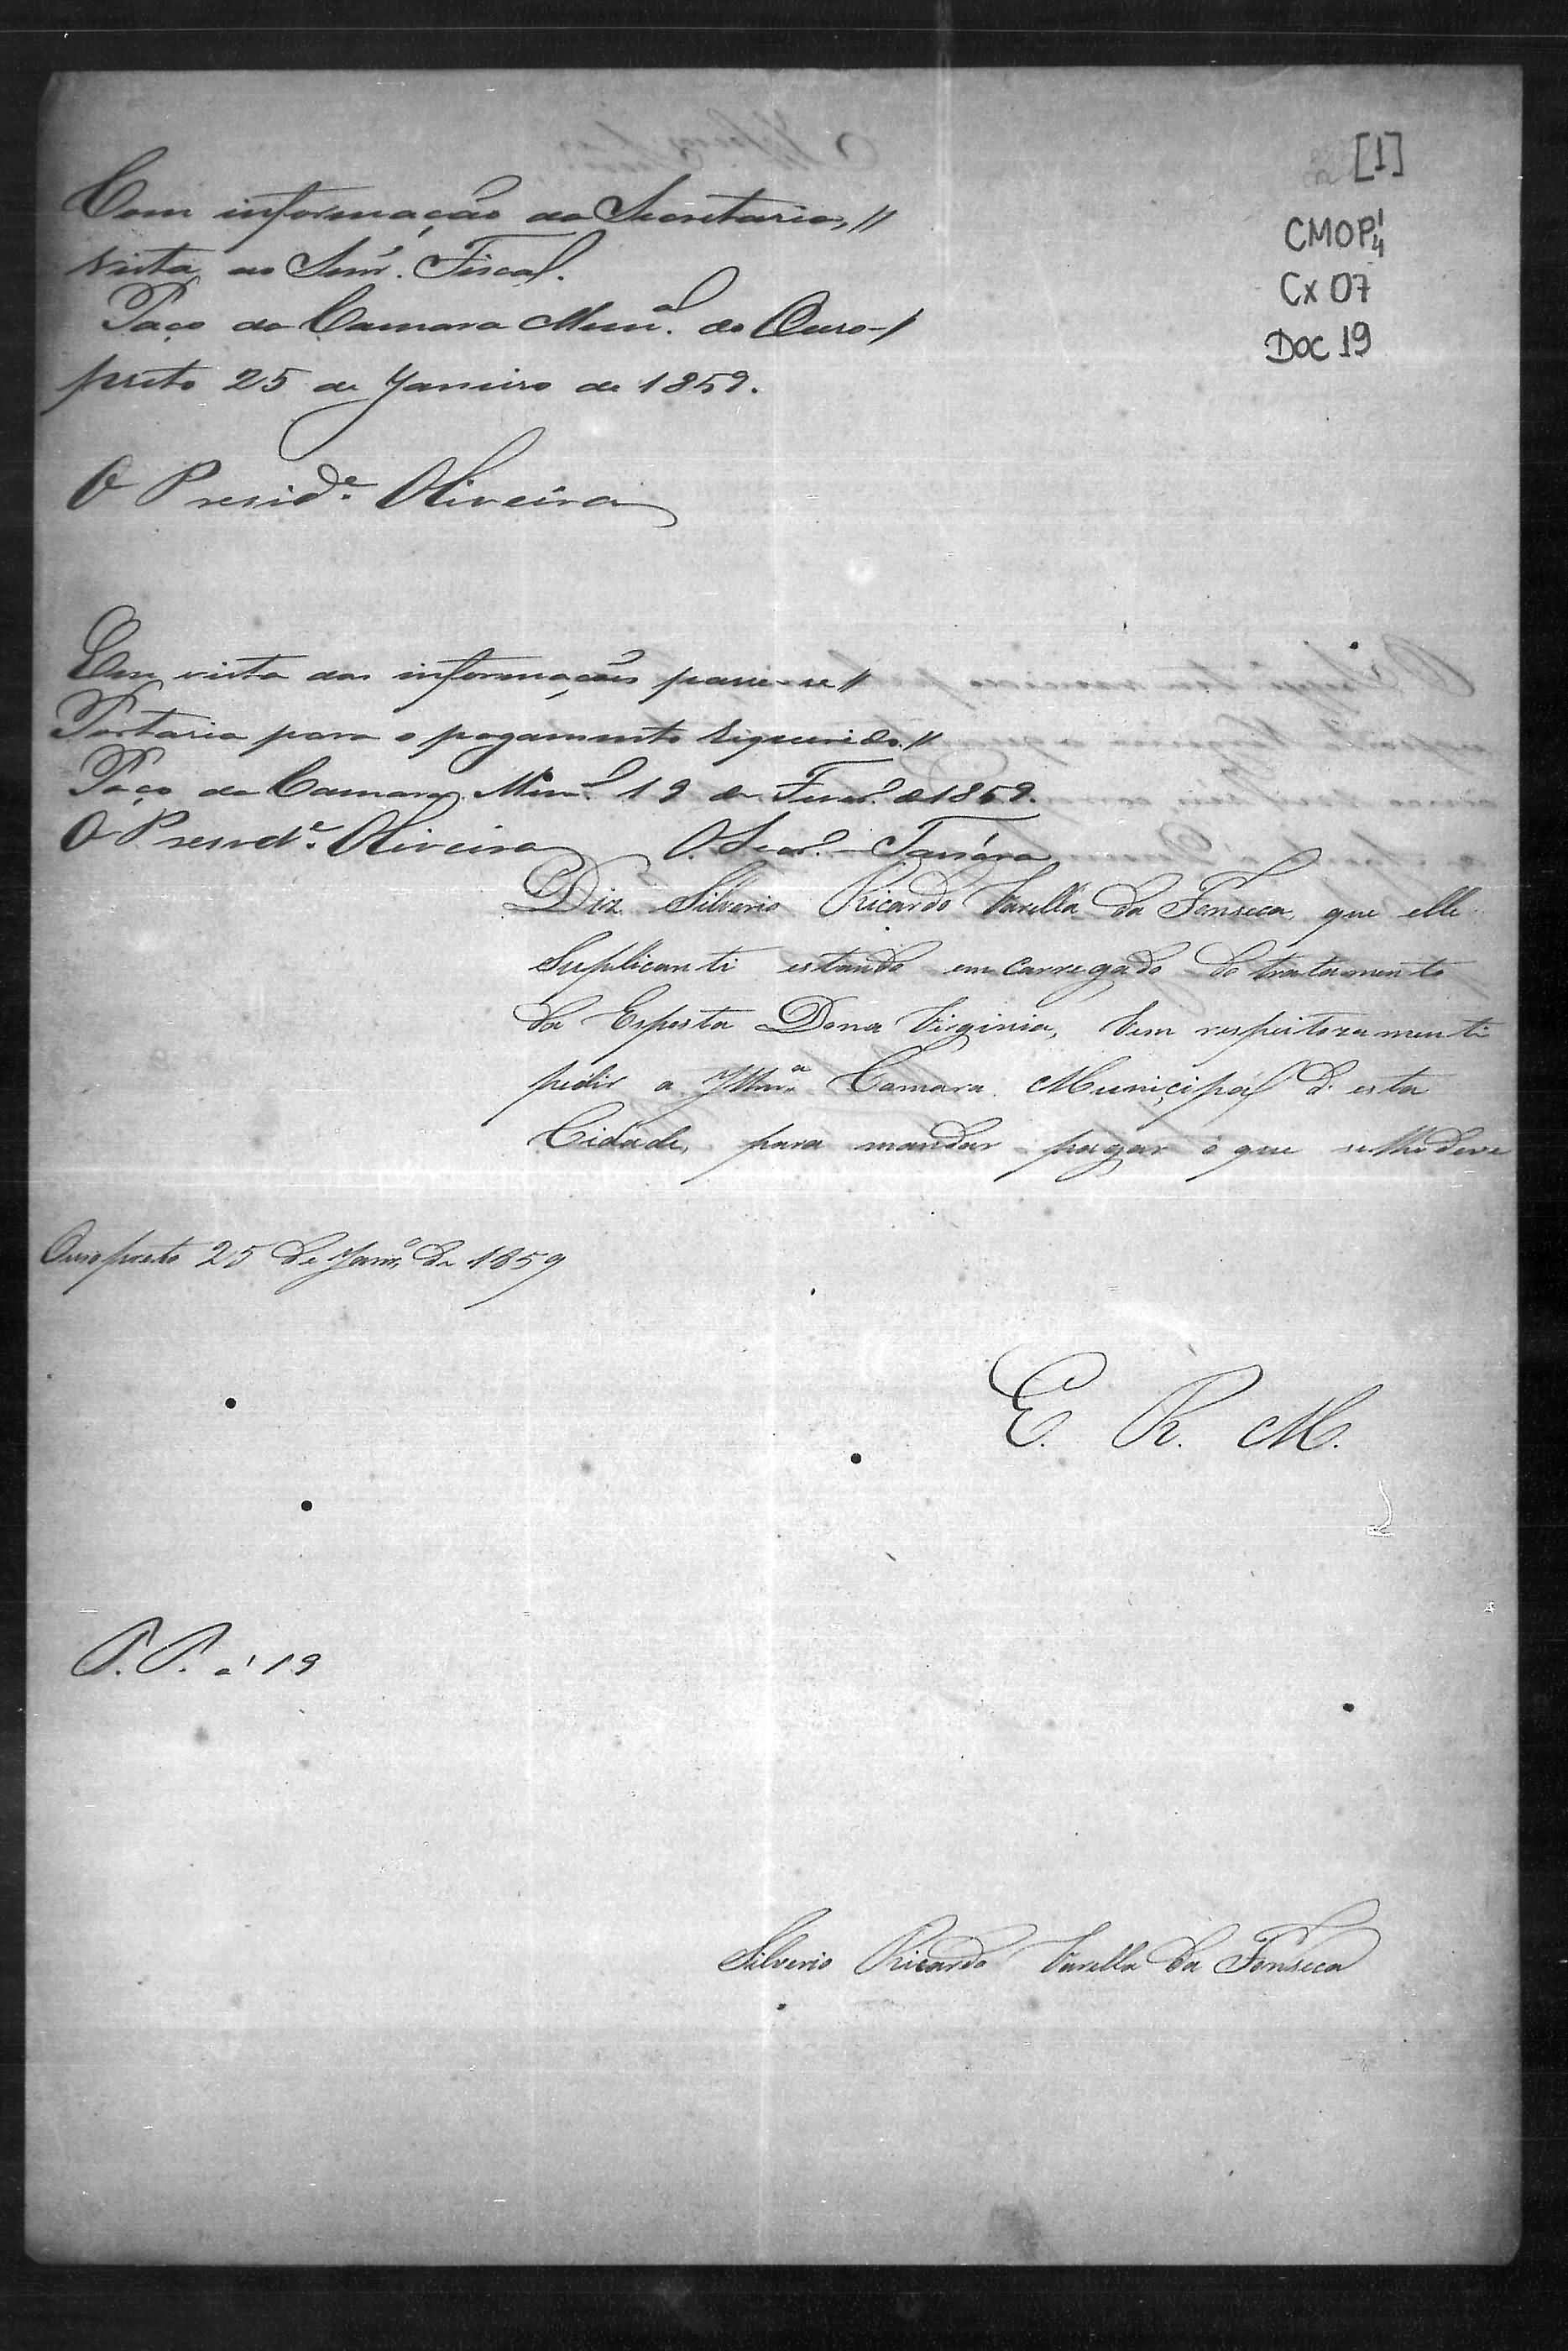 [1]
CMOP 1/4
Cx 07
Doc 19
Com informação da Secretaria, //
vista ao Senr. Fiscal.
Paço da Camara Munal. do Ouro-/
preto 25 de Janeiro de 1859.
O Preside. Oliveira
Em vista das informações passe-se //
Portaria para o pagamento requerido. //
Paço da Camara Munl. 19 de Fevro. de 1859.
O Preside. Oliveira O Secro.
Diz Silverio Ricardo Varella da Fonseca, que elle
Suplicanti estando em carregado do tratamento
da Esposta Dona Virginia, Vem respeitozamenti
pedir a Illma. Camara Municipal d'esta
Cidade, para mandar pagar o que selhe deve
Ouropreto 25 de Janro. de 1859
E. R. M.
P. P. a 19
Silverio Ricardo Varella da Fonseca